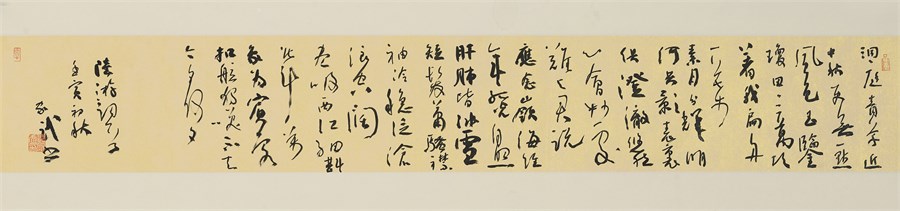 洞庭青草近
中秋更無一點
風色玉鑒
瓊田三萬頃
著我扁舟
一葉
素月分輝明
河共影表裏
俱澄澈悠然
心會妙處
難與君說
應念嶺海經
年孤光自照
肝肺皆冰雪
短髮蕭騷襟
袖冷穩泛滄
浪空闊
盡吸西江細斟
北斗萬
象為賓客
扣舷獨笑不知
今夕何夕
陸游詞
壬寅初秋